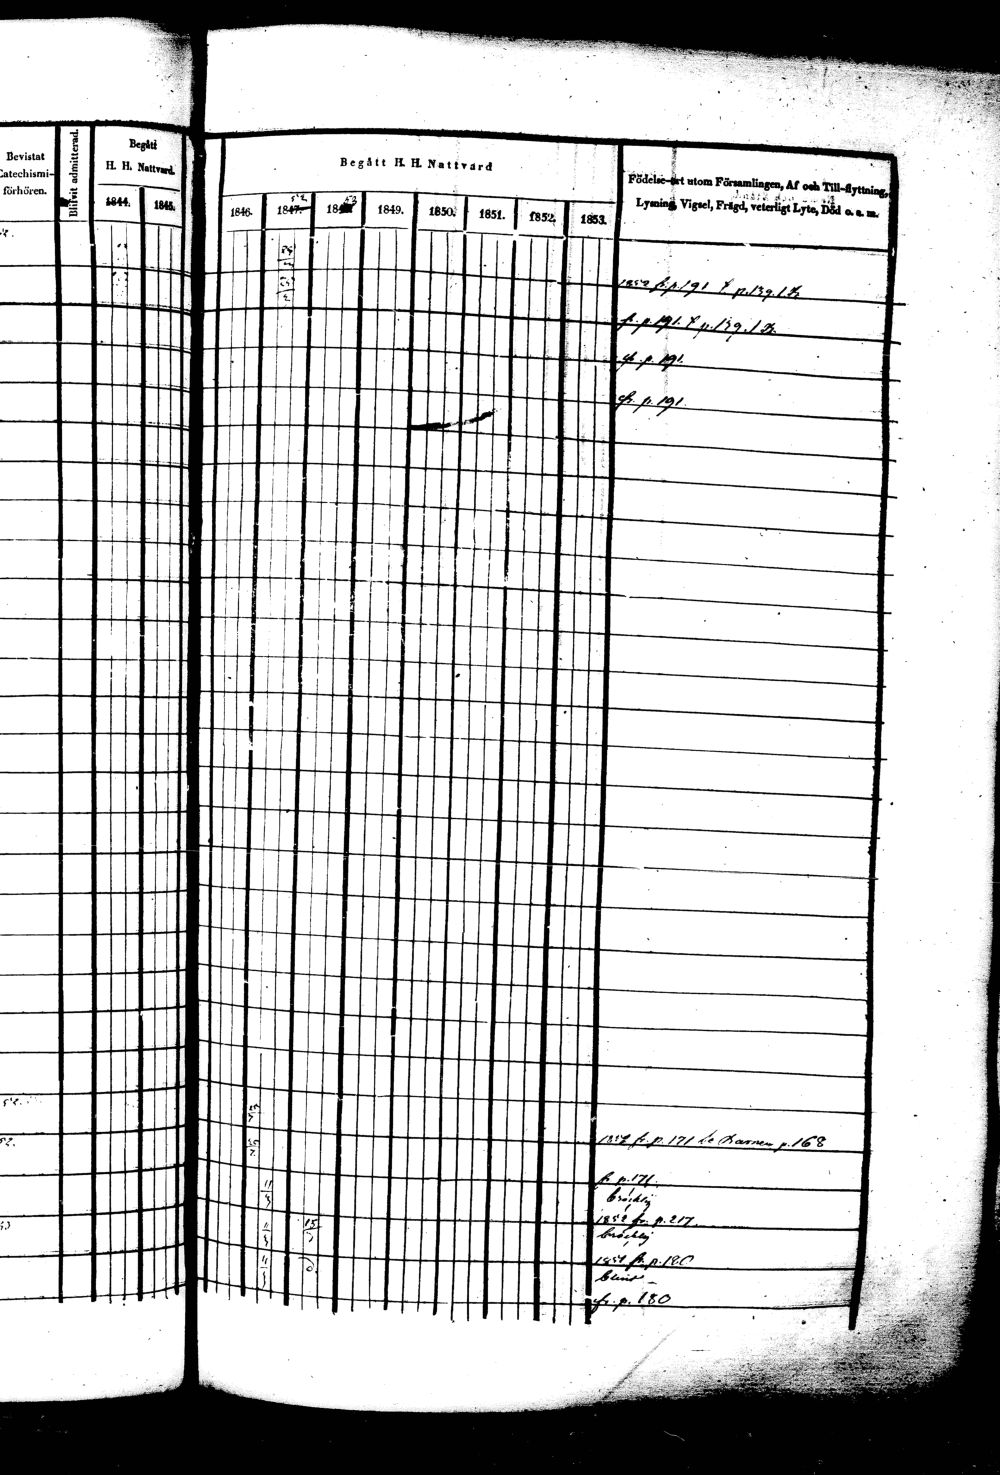 Bevistat
Catechismi-
förhören.
Blifvit admitterad.
Begått
H. H. Nattvard.
1844. 1845.
Begått H. H. Nattvard
1846. 1847. 52 184 53 1849. 1850. 1851. 1852. 1853.
Födelse-ort utom Församlingen, Af och Till-flyttning,
Lysning, Vigsel, Frägd, veterligt Lyte, Död o. s. m.
1852 fr. p. 191 t. p. 139.
fr. p. 191. t p. 139.
fr. p. 191.
fr. p. 191
52.
52.
1852 fr. p. 171 p. 168
fr p. 171.
bräcklig
1852 fr. p. 217.
bräcklig
fr. p. 180
blind
fr. p. 180